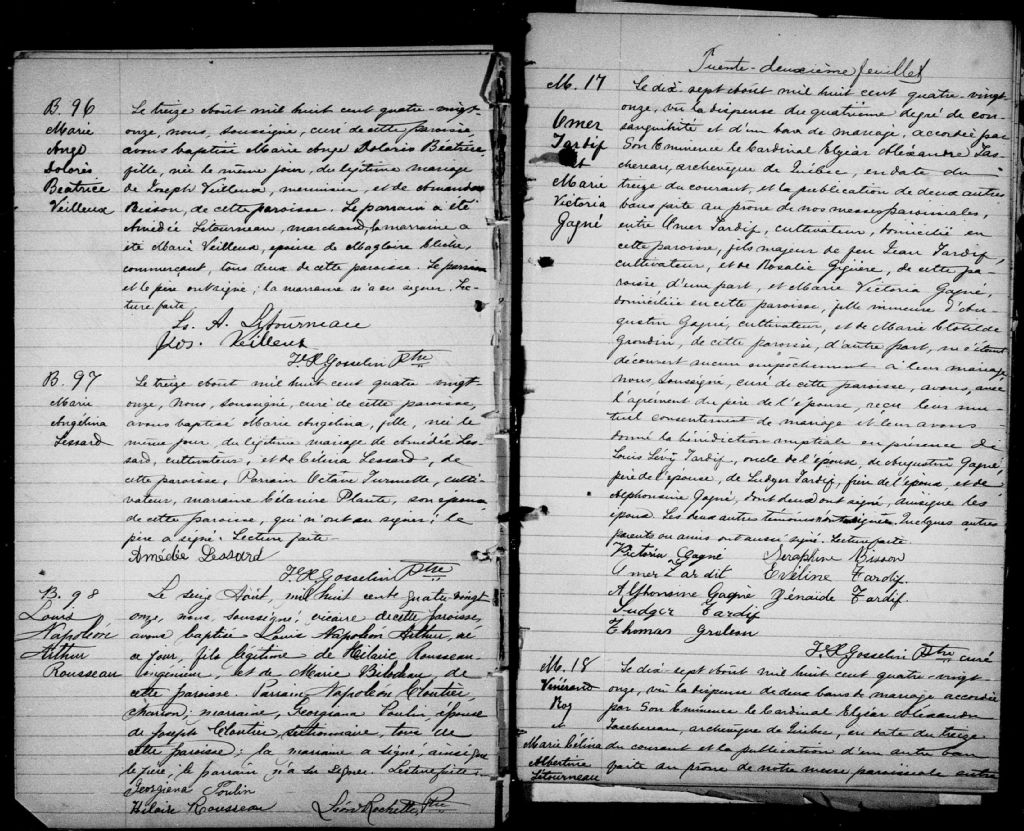 B. 96
Marie
Ange
Dolorès
Béatrice
Veilleux
Le treize Août mil huit cent quatre-vingt-
onze, nous, soussigné, curé de cette paroisse,
avons baptisé Marie Ange Dolorès Béatrice,
fille, née le même jour, du légitime mariage
de Joseph Veilleux, menuisier, et de Amanda
Bisson, de cette paroisse. Le parrain a été
Amédée Létourneau, marchand, la marraine a
été Marie Veilleux, épouse de Magloire Cliche,
commerçant, tous deux de cette paroisse. Le parrain
et le père ont signé; la marraine n'a su signer. Lec-
ture faite.
L. A. Létourneau
Jos. Veilleux
Gosselin Ptre
B. 97
Marie
Angélina
Lessard
Le treize Août mil huit cent quatre-vingt-
onze, nous, soussigné, curé de cette paroisse,
avons baptisé Marie Angelina, fille, née le
même jour, du légitime mariage de Amédée Les-
sard, cultivateur, et de Célina Lessard, de
cette paroisse. Parrain Octave Turmelle, culti-
vateur, marraine Célanire Plante, son épouse
de cette paroisse, qui n'ont su signer; le
père a signé. Lecture faite.
Amédée Lessard
Gosselin Ptre
B. 98
Louis
Napoléon
Arthur
Rousseau
Le seize Août, mil huit cent quatre vingt
onze, nous, soussigné, vicaire de cette paroisse,
avons baptisé Louis Napoléon Arthur, né
ce jour, fils légitime de Hilaire Rousseau
ingénieur, et de Marie Bilodeau, de
cette paroisse. Parrain, Napoléon Cloutier,
charron; marraine, Georgiana Poulin, épouse
de Joseph Cloutier, sectionnaire, tous de
cette paroisse; la marraine a signé ainsi que
le père; le parrain n'a su signer. Lecture faite.
Georgiana Poulin
Hilaire Rousseau
Léon Rochette, Ptre
Trente-deuxième feuillet
M. 17
Omer
Tardif
et
Marie
Victoria
Gagné
Le dix sept Août mil huit cent quatre-vingt
onze, vu la dispense du quatrième degré de con-
sanguinité et d'un banc de mariage, accordée par
Son Eminence le Cardinal Elzéar Alexandre Tas-
chereau, archevêque de Québec, en date du
treize du courant, et la publication de deux autres
bans faite au prône de nos messes paroissiales,
entre Omer Tardif, cultivateur, domicilié en
cette paroisse, fils majeur de feu Jean Tardif,
cultivateur, et de Rosalie Giguère, de cette pa-
roisse d'une part, et Marie Victoria Gagné,
domiciliée en cette paroisse, fille mineure d'Au-
gustin Gagné, cultivateur, et de Marie Clotilde
Grondin, de cette paroisse, d'autre part, ne s'étant
découvert aucun empêchement à leur mariage,
nous, soussigné, curé de cette paroisse, avons, avec
l'agrément du père de l'épouse, reçu leur mu-
tuel consentement de mariage et leur avons
donné la bénédiction nuptiale en présence de
Louis Lévi Tardif, oncle de l'épouse, de Augustin Gagné,
père de l'épouse, de Ludger Tardif, frère de l'époux, et de
Alphonsine Gagné, dont deux ont signé, ainsi que les
époux. Les deux autres témoins n'ont su signer. Quelques autres
parents ou amis ont aussi signé. Lecture faite
Victoria Gagné Séraphine Bisson
Omer Tardif Evéline Tardif
Alphonsine Gagné Zénaïde Tardif
Ludger Tardif
Thomas
Gosselin Ptre curé
M. 18
Vénérand
Roy
et
Marie Célina
Albertine
Létourneau
Le dix sept Août mil huit cent quatre-vingt-
onze, vu la dispense de deux bans de mariage accordée
par Son Eminence le Cardinal Elzéar Alexandre
Taschereau, archevêque de Québec, en date du treize
du courant et la publication d'un autre ban
faite au prône de notre messe paroissiale entre